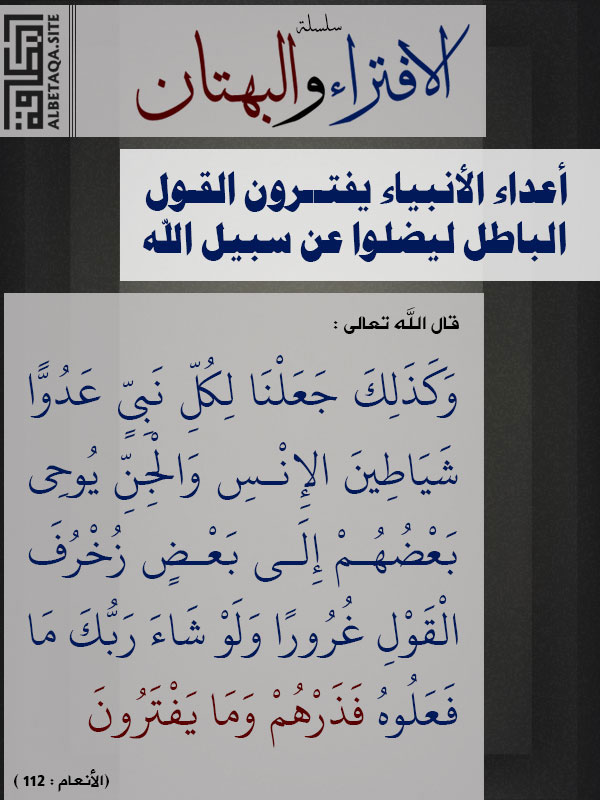 سلسلة
الافتراء والبهتان
البطاقة
ALBETAQA.SITE
أعداء الأنبياء يفتــرون القـول
الباطل ليضلوا عن سبيل الله
قال اللَّه تعالى :
وَكَذَلِكَ جَعَلْنَا لِكُلِّ نَبِيٍّ عَدُوًّا
شَيَاطِينَ الإِنْــسِ وَالْجِنِّ يُوحِى
بَعْضُهُــمْ إِلَــى بَعْــضٍ زُخْرُفَ
الْقَوْلِ غُرُورًا وَلَوْ شَاءَ رَبُّكَ مَا
فَعَلُوهُ فَذَرْهُمْ وَمَا يَفْتَرُونَ
(الأنعام : 112 )